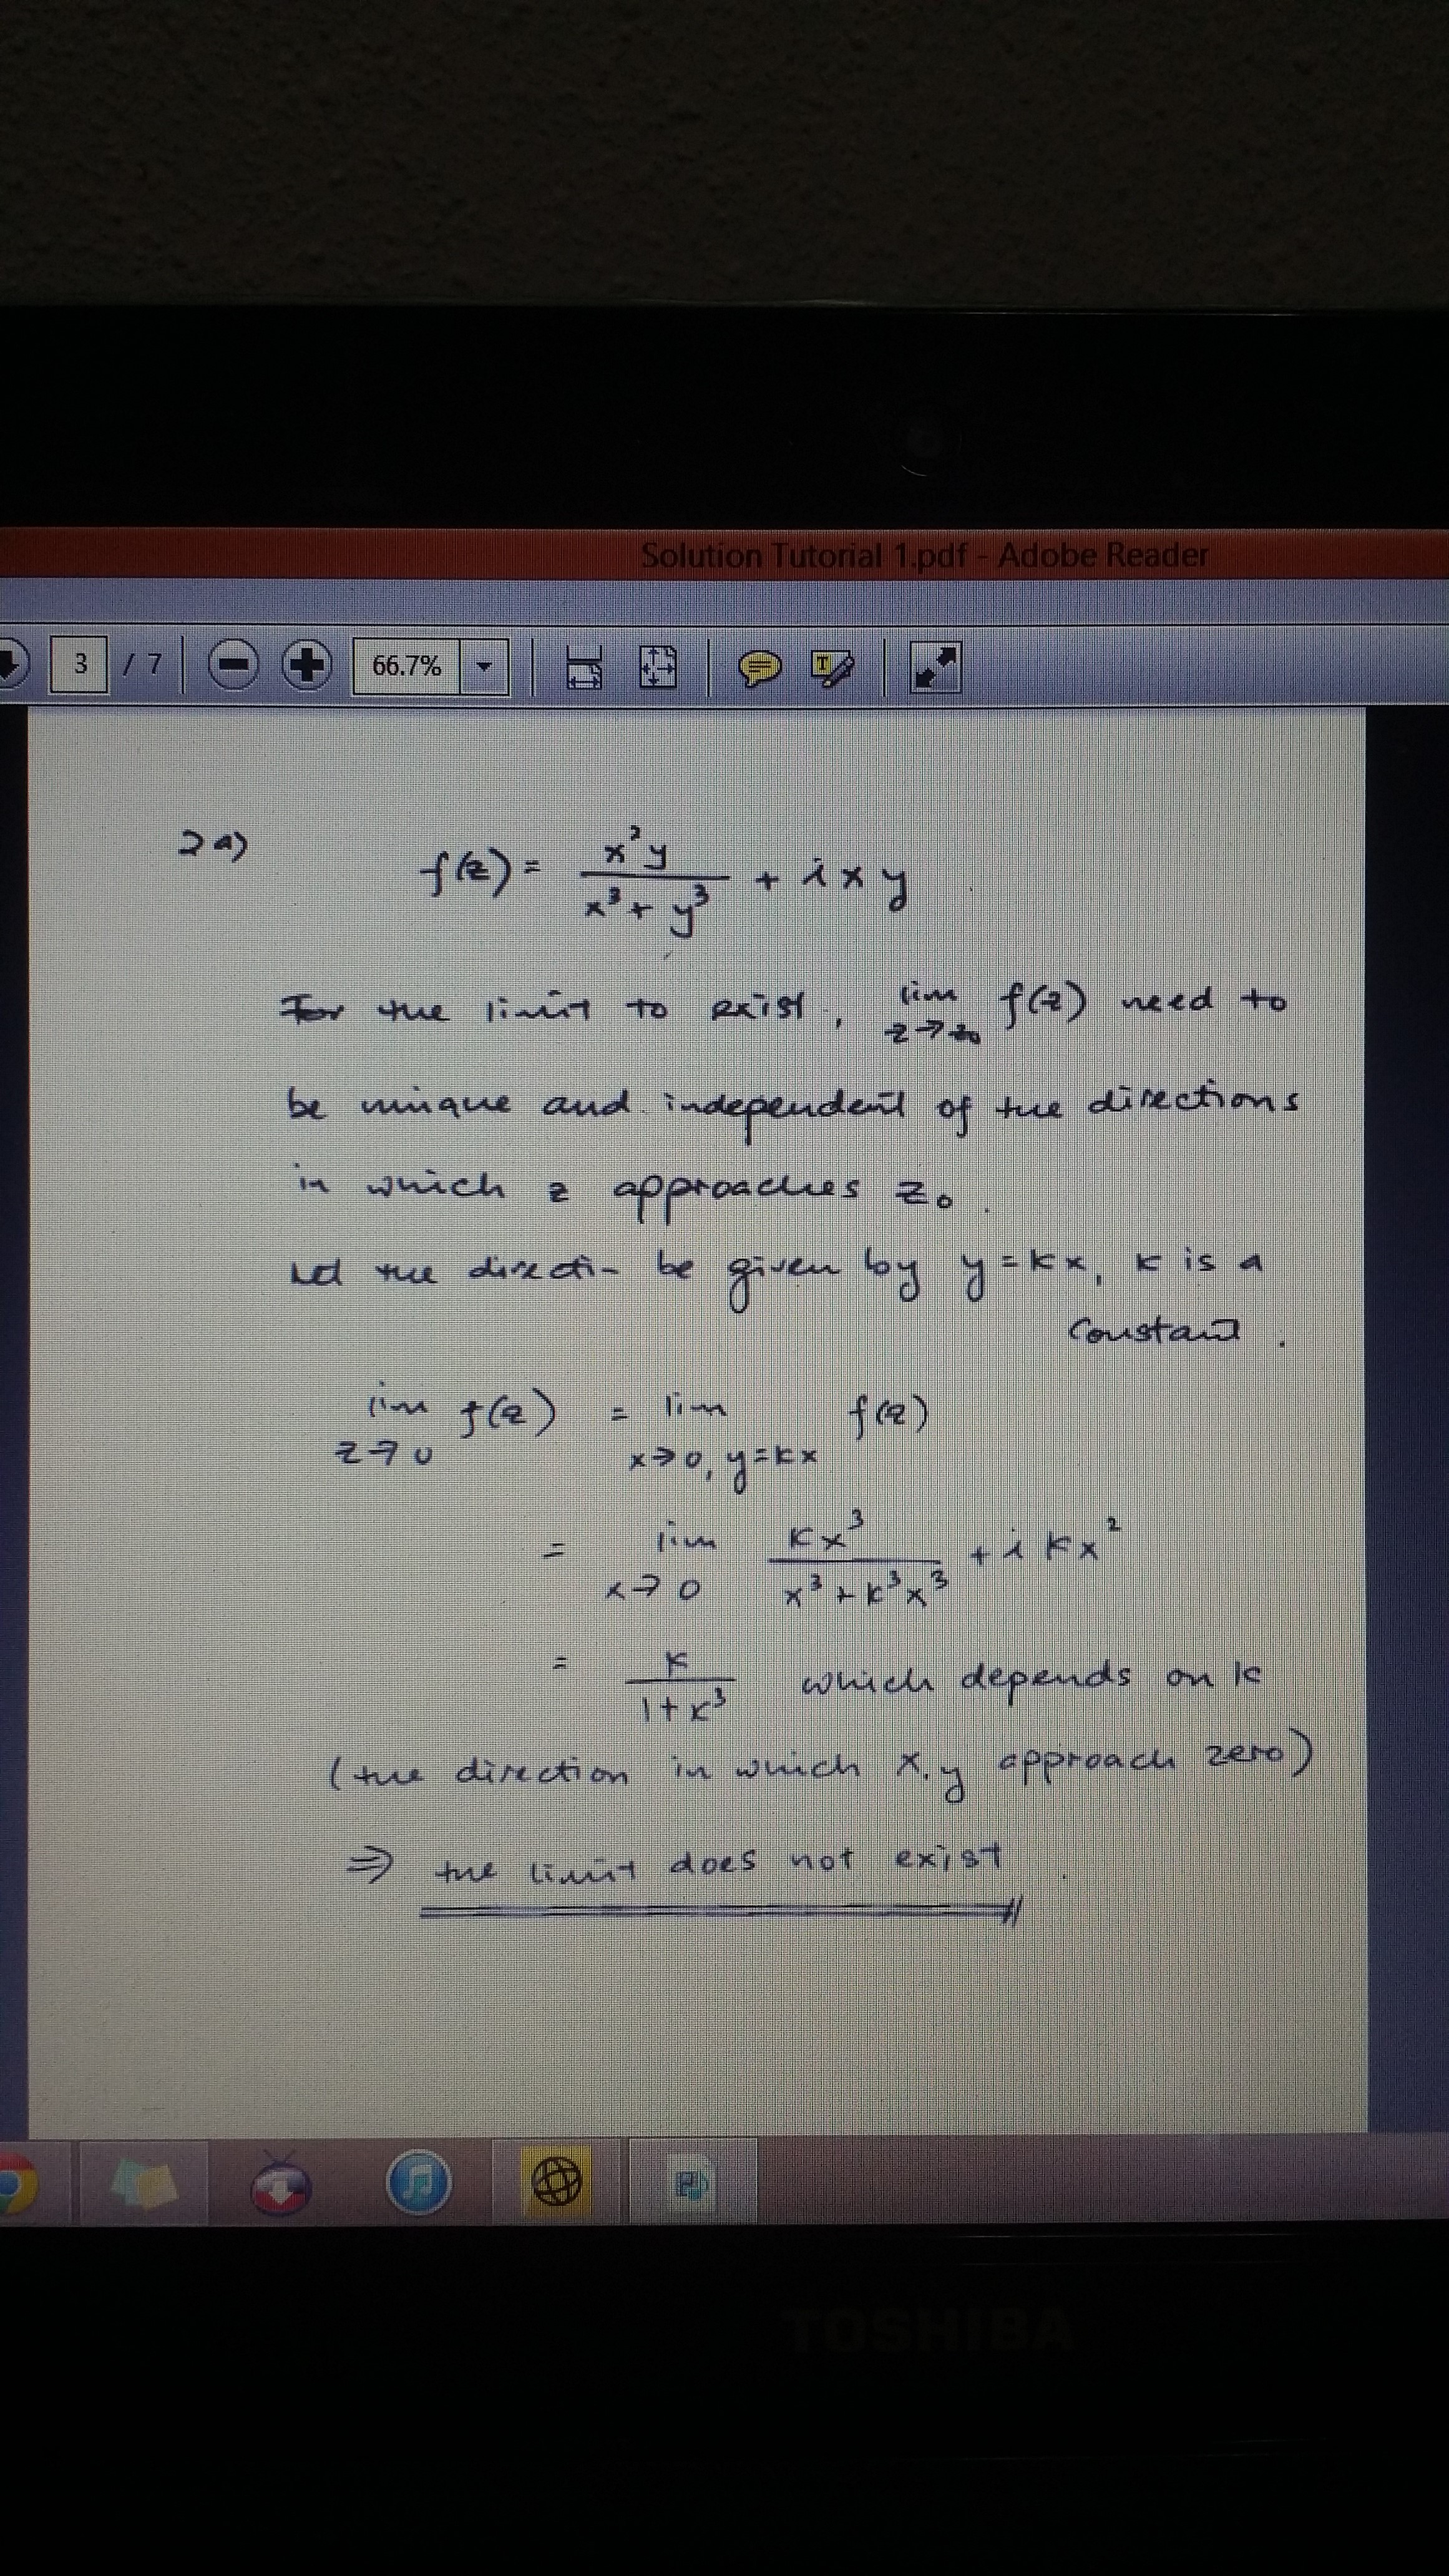 Solution Tutorial 1.pdf - Adobe Reader
3 / 7 66.7%
2a) f(z) = x²y / (x³ + y³) + i x y
For the limit to exist, lim z→z₀ f(z) need to
be unique and independent of the directions
in which z approaches z₀.
Let the directi- be given by y = kx, k is a
constant.
lim z→0 f(z) = lim x→0, y=kx f(z)
= lim x→0 kx³ / (x³ + k³x³) + i kx²
= k / (1 + k³) which depends on k
(the direction in which x, y approach zero)
⇒ the limit does not exist.
TOSHIBA